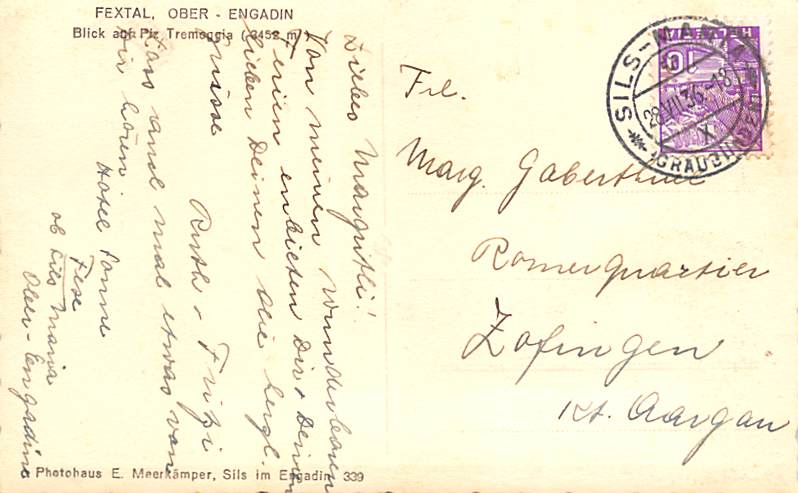 FEXTAL, OBER - ENGADIN
Blick auf Piz Tremoggia (3452 m)
Liebes Margritli!
Von meinen wunderbaren
Ferien entbieten Dir & Deinen
lieben Deinen die herzl.
Grüsse
Ruth & Fritzi
Lass auch mal etwas von
Dir hören.
Hotel Sonne
Fex
ob Sils Maria
Ober-Engadin
Photohaus E. Meerkämper, Sils im Engadin 339
Frl.
Marg. Gaberthüel
Römerquartier
Zofingen
Kt. Aargau
SILS-MARIA
28.VII.36.-18
X
(GRAUBÜNDEN)
HELVETIA
10